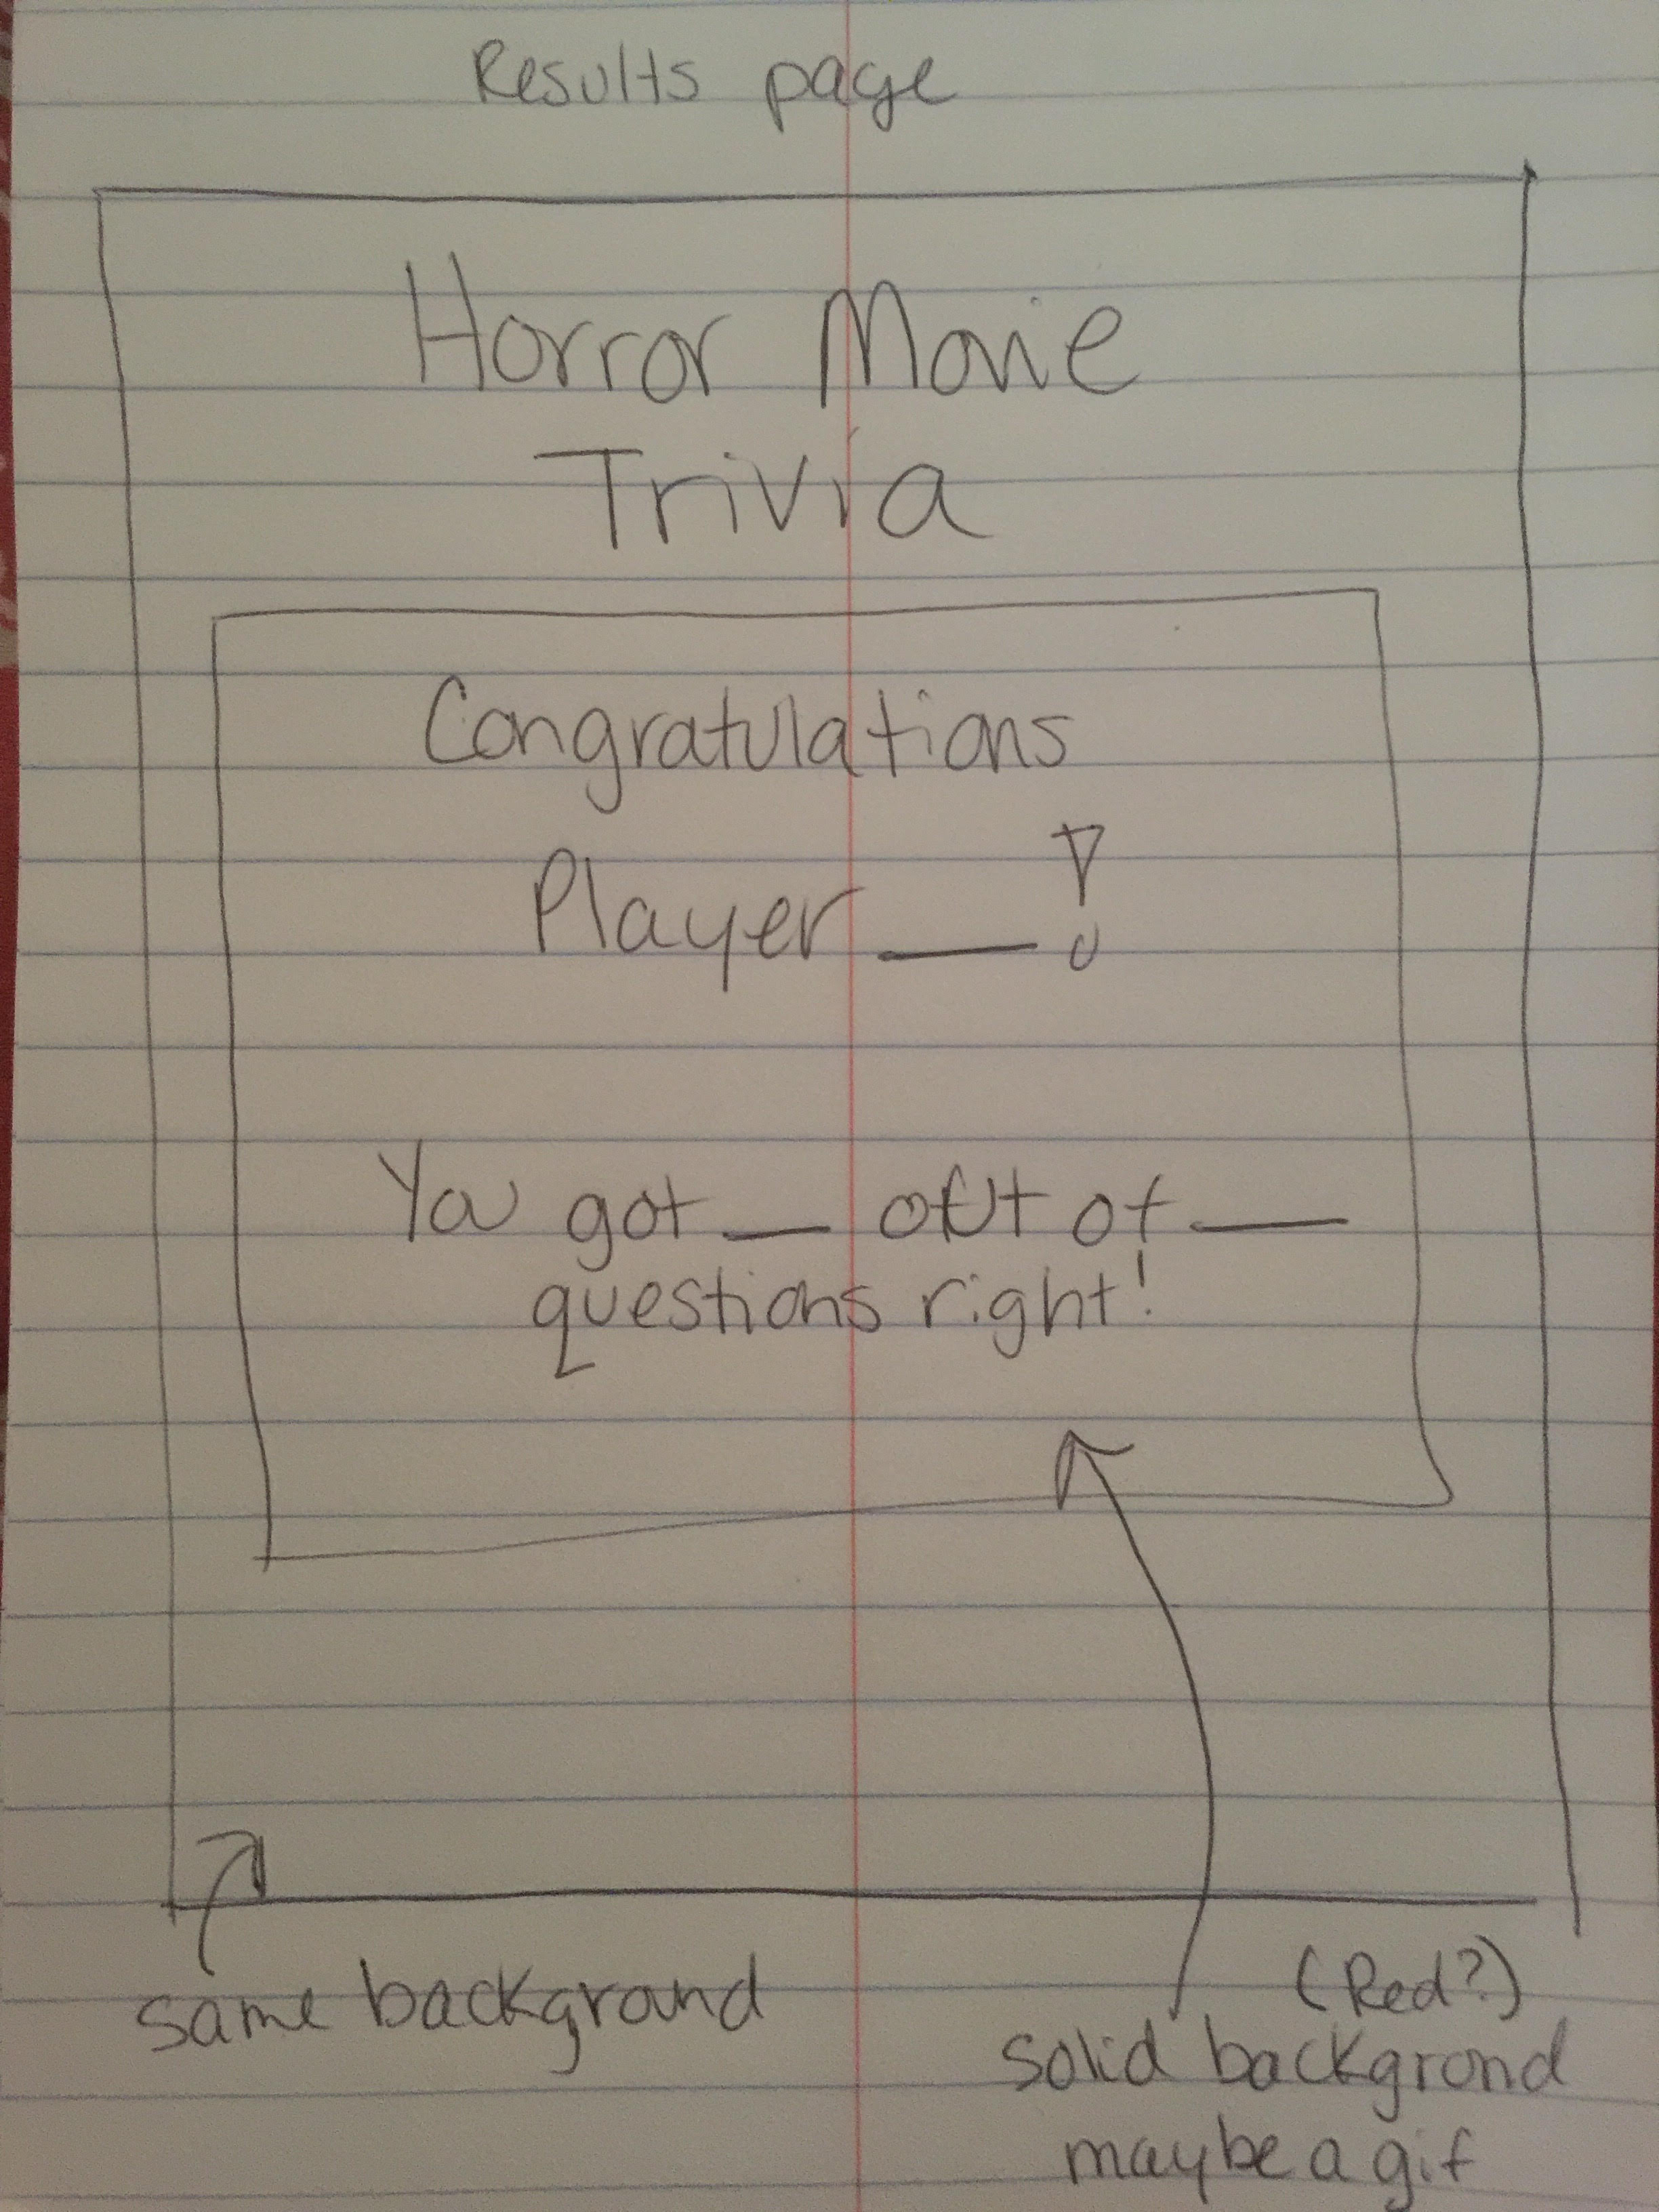 Results page
Horror Movie
Trivia
Congratulations
Player __!
You got __ out of __
questions right!
same background
(Red?)
solid background
maybe a gif